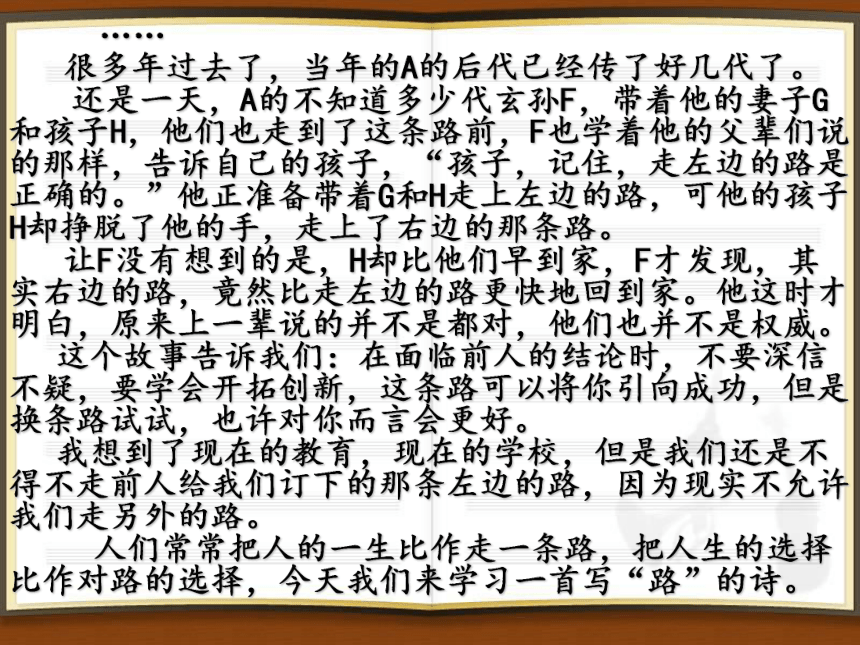 ……
很多年过去了，当年的A的后代已经传了好几代了。
还是一天，A的不知道多少代玄孙F，带着他的妻子G
和孩子H，他们也走到了这条路前，F也学着他的父辈们说
的那样，告诉自己的孩子，“孩子，记住，走左边的路是
正确的。”他正准备带着G和H走上左边的路，可他的孩子
H却挣脱了他的手，走上了右边的那条路。
让F没有想到的是，H却比他们早到家，F才发现，其
实右边的路，竟然比走左边的路更快地回到家。他这时才
明白，原来上一辈说的并不是都对，他们也并不是权威。
这个故事告诉我们：在面临前人的结论时，不要深信
不疑，要学会开拓创新，这条路可以将你引向成功，但是
换条路试试，也许对你而言会更好。
我想到了现在的教育，现在的学校，但是我们还是不
得不走前人给我们订下的那条左边的路，因为现实不允许
我们走另外的路。
人们常常把人的一生比作走一条路，把人生的选择
比作对路的选择，今天我们来学习一首写“路”的诗。